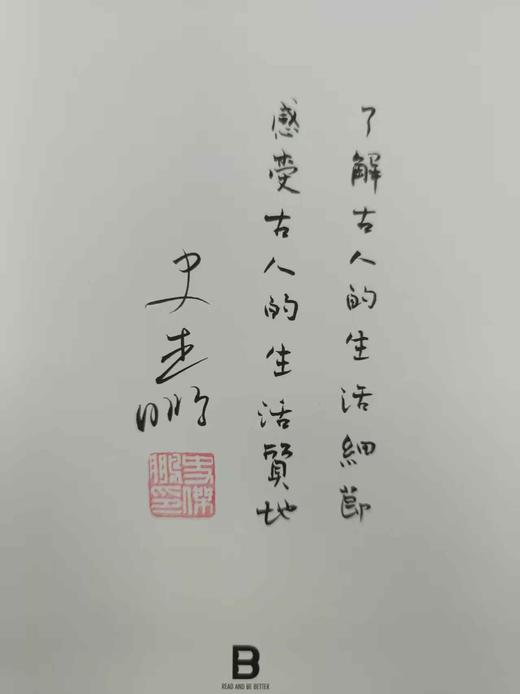 了解古人的生活細節
感受古人的生活質地
史杰鹏
史傑鵬印
B
READ AND BE BETTER